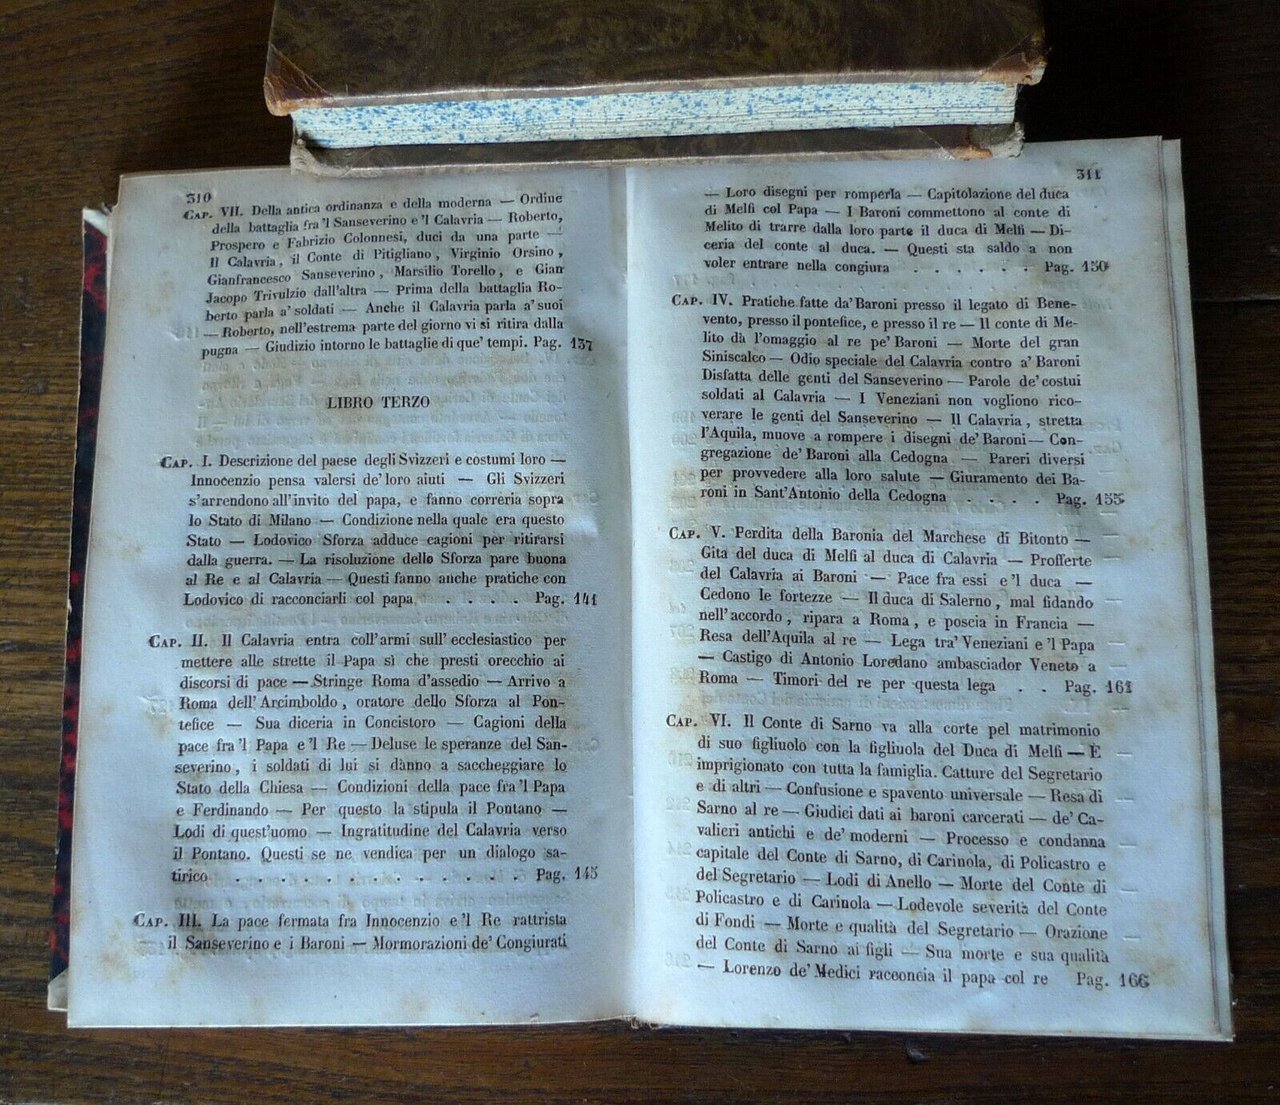 310
CAP. VII. Della antica ordinanza e della moderna — Ordine
della battaglia fra 'l Sanseverino e 'l Calavria — Roberto,
Prospero e Fabrizio Colonnesi, duci da una parte —
Il Calavria, il Conte di Pitigliano, Virginio Orsino,
Gianfrancesco Sanseverino, Marsilio Torello, e Gian
Jacopo Trivulzio dall'altra — Prima della battaglia Ro-
berto parla a' soldati — Anche il Calavria parla a' suoi
— Roberto, nell'estrema parte del giorno vi si ritira dalla
pugna — Giudizio intorno le battaglie di que' tempi. Pag. 137
LIBRO TERZO
CAP. I. Descrizione del paese degli Svizzeri e costumi loro —
Innocenzio pensa valersi de' loro aiuti — Gli Svizzeri
s'arrendono all'invito del papa, e fanno correria sopra
lo Stato di Milano — Condizione nella quale era questo
Stato — Lodovico Sforza adduce cagioni per ritirarsi
dalla guerra. — La risoluzione dello Sforza pare buona
al Re e al Calavria — Questi fanno anche pratiche con
Lodovico di racconciarli col papa . . . . . Pag. 141
CAP. II. Il Calavria entra coll'armi sull'ecclesiastico per
mettere alle strette il Papa sì che presti orecchio ai
discorsi di pace — Stringe Roma d'assedio — Arrivo a
Roma dell'Arcimboldo, oratore dello Sforza al Pon-
tefice — Sua diceria in Concistoro — Cagioni della
pace fra 'l Papa e 'l Re — Deluse le speranze del San-
severino, i soldati di lui si dànno a saccheggiare lo
Stato della Chiesa — Condizioni della pace fra 'l Papa
e Ferdinando — Per questo la stipula il Pontano —
Lodi di quest'uomo — Ingratitudine del Calavria verso
il Pontano. Questi se ne vendica per un dialogo sa-
tirico . . . . . . . . . . . . . Pag. 145
CAP. III. La pace fermata fra Innocenzio e 'l Re rattrista
il Sanseverino e i Baroni — Mormorazioni de' Congiurati
311
— Loro disegni per romperla — Capitolazione del duca
di Melfi col Papa — I Baroni commettono al conte di
Melito di trarre dalla loro parte il duca di Melfi — Di-
ceria del conte al duca. — Questi sta saldo a non
voler entrare nella congiura . . . . . . . Pag. 150
CAP. IV. Pratiche fatte da' Baroni presso il legato di Bene-
vento, presso il pontefice, e presso il re — Il conte di Me-
lito dà l'omaggio al re pe' Baroni — Morte del gran
Siniscalco — Odio speciale del Calavria contro a' Baroni
Disfatta delle genti del Sanseverino — Parole de' costui
soldati al Calavria — I Veneziani non vogliono rico-
verare le genti del Sanseverino — Il Calavria, stretta
l'Aquila, muove a rompere i disegni de' Baroni — Con-
gregazione de' Baroni alla Cedogna — Pareri diversi
per provvedere alla loro salute — Giuramento dei Ba-
roni in Sant'Antonio della Cedogna . . . . Pag. 155
CAP. V. Perdita della Baronia del Marchese di Bitonto —
Gita del duca di Melfi al duca di Calavria — Profferte
del Calavria ai Baroni — Pace fra essi e 'l duca —
Cedono le fortezze — Il duca di Salerno, mal fidando
nell'accordo, ripara a Roma, e poscia in Francia —
Resa dell'Aquila al re — Lega tra' Veneziani e 'l Papa
— Castigo di Antonio Loredano ambasciador Veneto a
Roma — Timori del re per questa lega . . Pag. 161
CAP. VI. Il Conte di Sarno va alla corte pel matrimonio
di suo figliuolo con la figliuola del Duca di Melfi — È
imprigionato con tutta la famiglia. Catture del Segretario
e di altri — Confusione e spavento universale — Resa di
Sarno al re — Giudici dati ai baroni carcerati — de' Ca-
valieri antichi e de' moderni — Processo e condanna
capitale del Conte di Sarno, di Carinola, di Policastro e
del Segretario — Lodi di Anello — Morte del Conte di
Policastro e di Carinola — Lodevole severità del Conte
di Fondi — Morte e qualità del Segretario — Orazione
del Conte di Sarno ai figli — Sua morte e sua qualità
— Lorenzo de' Medici racconcia il papa col re Pag. 166